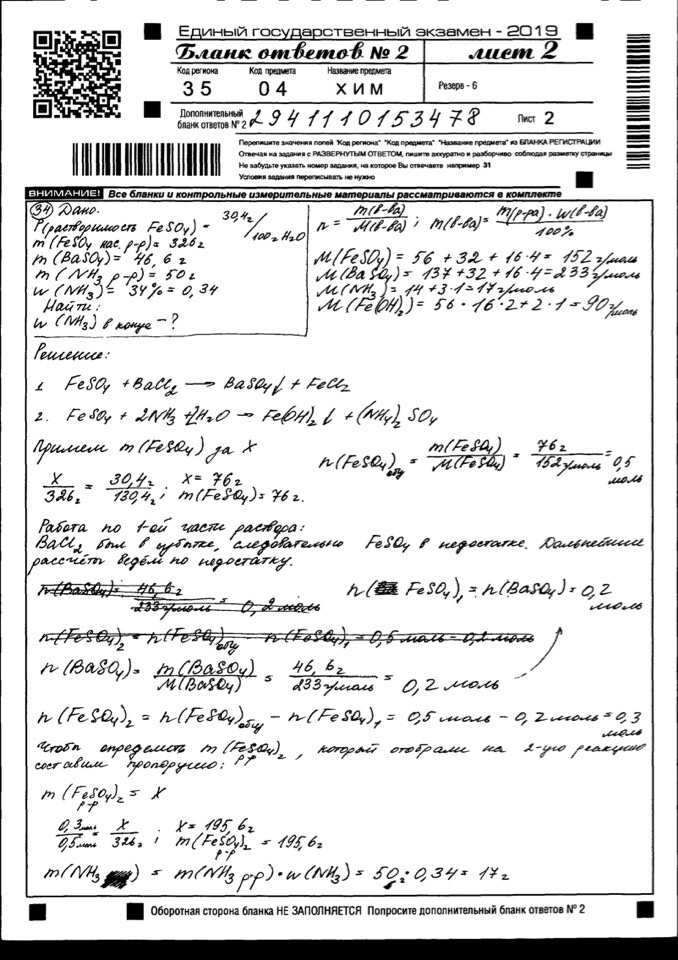 Единый государственный экзамен - 2019
Бланк ответов № 2 лист 2
Код региона Код предмета Название предмета
35 04 ХИМ Резерв - 6
Дополнительный бланк ответов № 2 2941110153478 Лист 2
Перепишите значения полей "Код региона" "Код предмета" "Название предмета" из БЛАНКА РЕГИСТРАЦИИ
Отвечая на задания с РАЗВЕРНУТЫМ ОТВЕТОМ, пишите аккуратно и разборчиво соблюдая разметку страницы
Не забудьте указать номер задания, на которое Вы отвечаете например 31
Условия задания переписывать не нужно
ВНИМАНИЕ! Все бланки и контрольные измерительные материалы рассматриваются в комплекте
(34) Дано.
P(растворимость FeSO₄) = 30,4г/100г H₂O
m(FeSO₄ нас. р-р) = 326г
m(BaSO₄) = 46,6г
m(NH₃ р-р) = 50г
w(NH₃) = 34% = 0,34
Найти:
w(NH₃) в конце - ?
n = m(в-ва)/M(в-ва); m(в-ва) = m(р-ра)·w(в-ва)/100%
M(FeSO₄) = 56 + 32 + 16·4 = 152 г/моль
M(BaSO₄) = 137 + 32 + 16·4 = 233 г/моль
M(NH₃) = 14 + 3·1 = 17 г/моль
M(Fe(OH)₂) = 56·16·2 + 2·1 = 90 г/моль
Решение:
1. FeSO₄ + BaCl₂ → BaSO₄↓ + FeCl₂
2. FeSO₄ + 2NH₃ + 2H₂O → Fe(OH)₂↓ + (NH₄)₂SO₄
Примем m(FeSO₄) за X
X/326г = 30,4г/130,4г; X = 76г m(FeSO₄) = 76г.
n(FeSO₄)общ = m(FeSO₄)/M(FeSO₄) = 76г/152г/моль = 0,5 моль
Работа по 1-ой части раствора:
BaCl₂ был в избытке, следовательно FeSO₄ в недостатке. Дальнейшие
рассчёты ведём по недостатку.
n(BaSO₄) = 46,6г/233г/моль = 0,2 моль
n(FeSO₄)₁ = n(BaSO₄) = 0,2 моль
n(FeSO₄)₂ = n(FeSO₄)общ - n(FeSO₄)₁ = 0,5 моль - 0,2 моль
n(BaSO₄) = m(BaSO₄)/M(BaSO₄) = 46,6г/233г/моль = 0,2 моль
n(FeSO₄)₂ = n(FeSO₄)общ - n(FeSO₄)₁ = 0,5 моль - 0,2 моль = 0,3 моль
Чтобы определить m(FeSO₄)₂ р-р, который отобрали на 2-ую реакцию
составим пропорцию:
m(FeSO₄)₂ р-р = X
0,3моль/0,5моль = X/326г; X = 195,6г m(FeSO₄)₂ р-р = 195,6г
m(NH₃) = m(NH₃ р-р)·w(NH₃) = 50г·0,34 = 17г
Оборотная сторона бланка НЕ ЗАПОЛНЯЕТСЯ Попросите дополнительный бланк ответов № 2